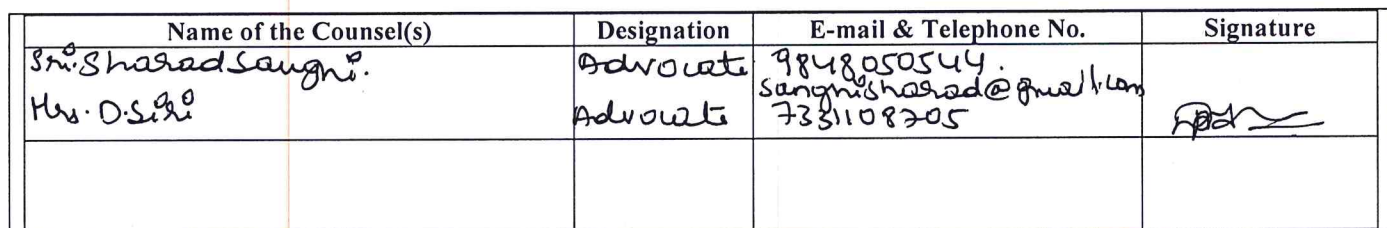 Name of the Counsel(s) Designation E-mail & Telephone No. Signature
Sri. Sharad Sanghi. Advocate 9848050544.
sanghisharad@gmail.com
Mrs. D. Siri Advocate 7331108205